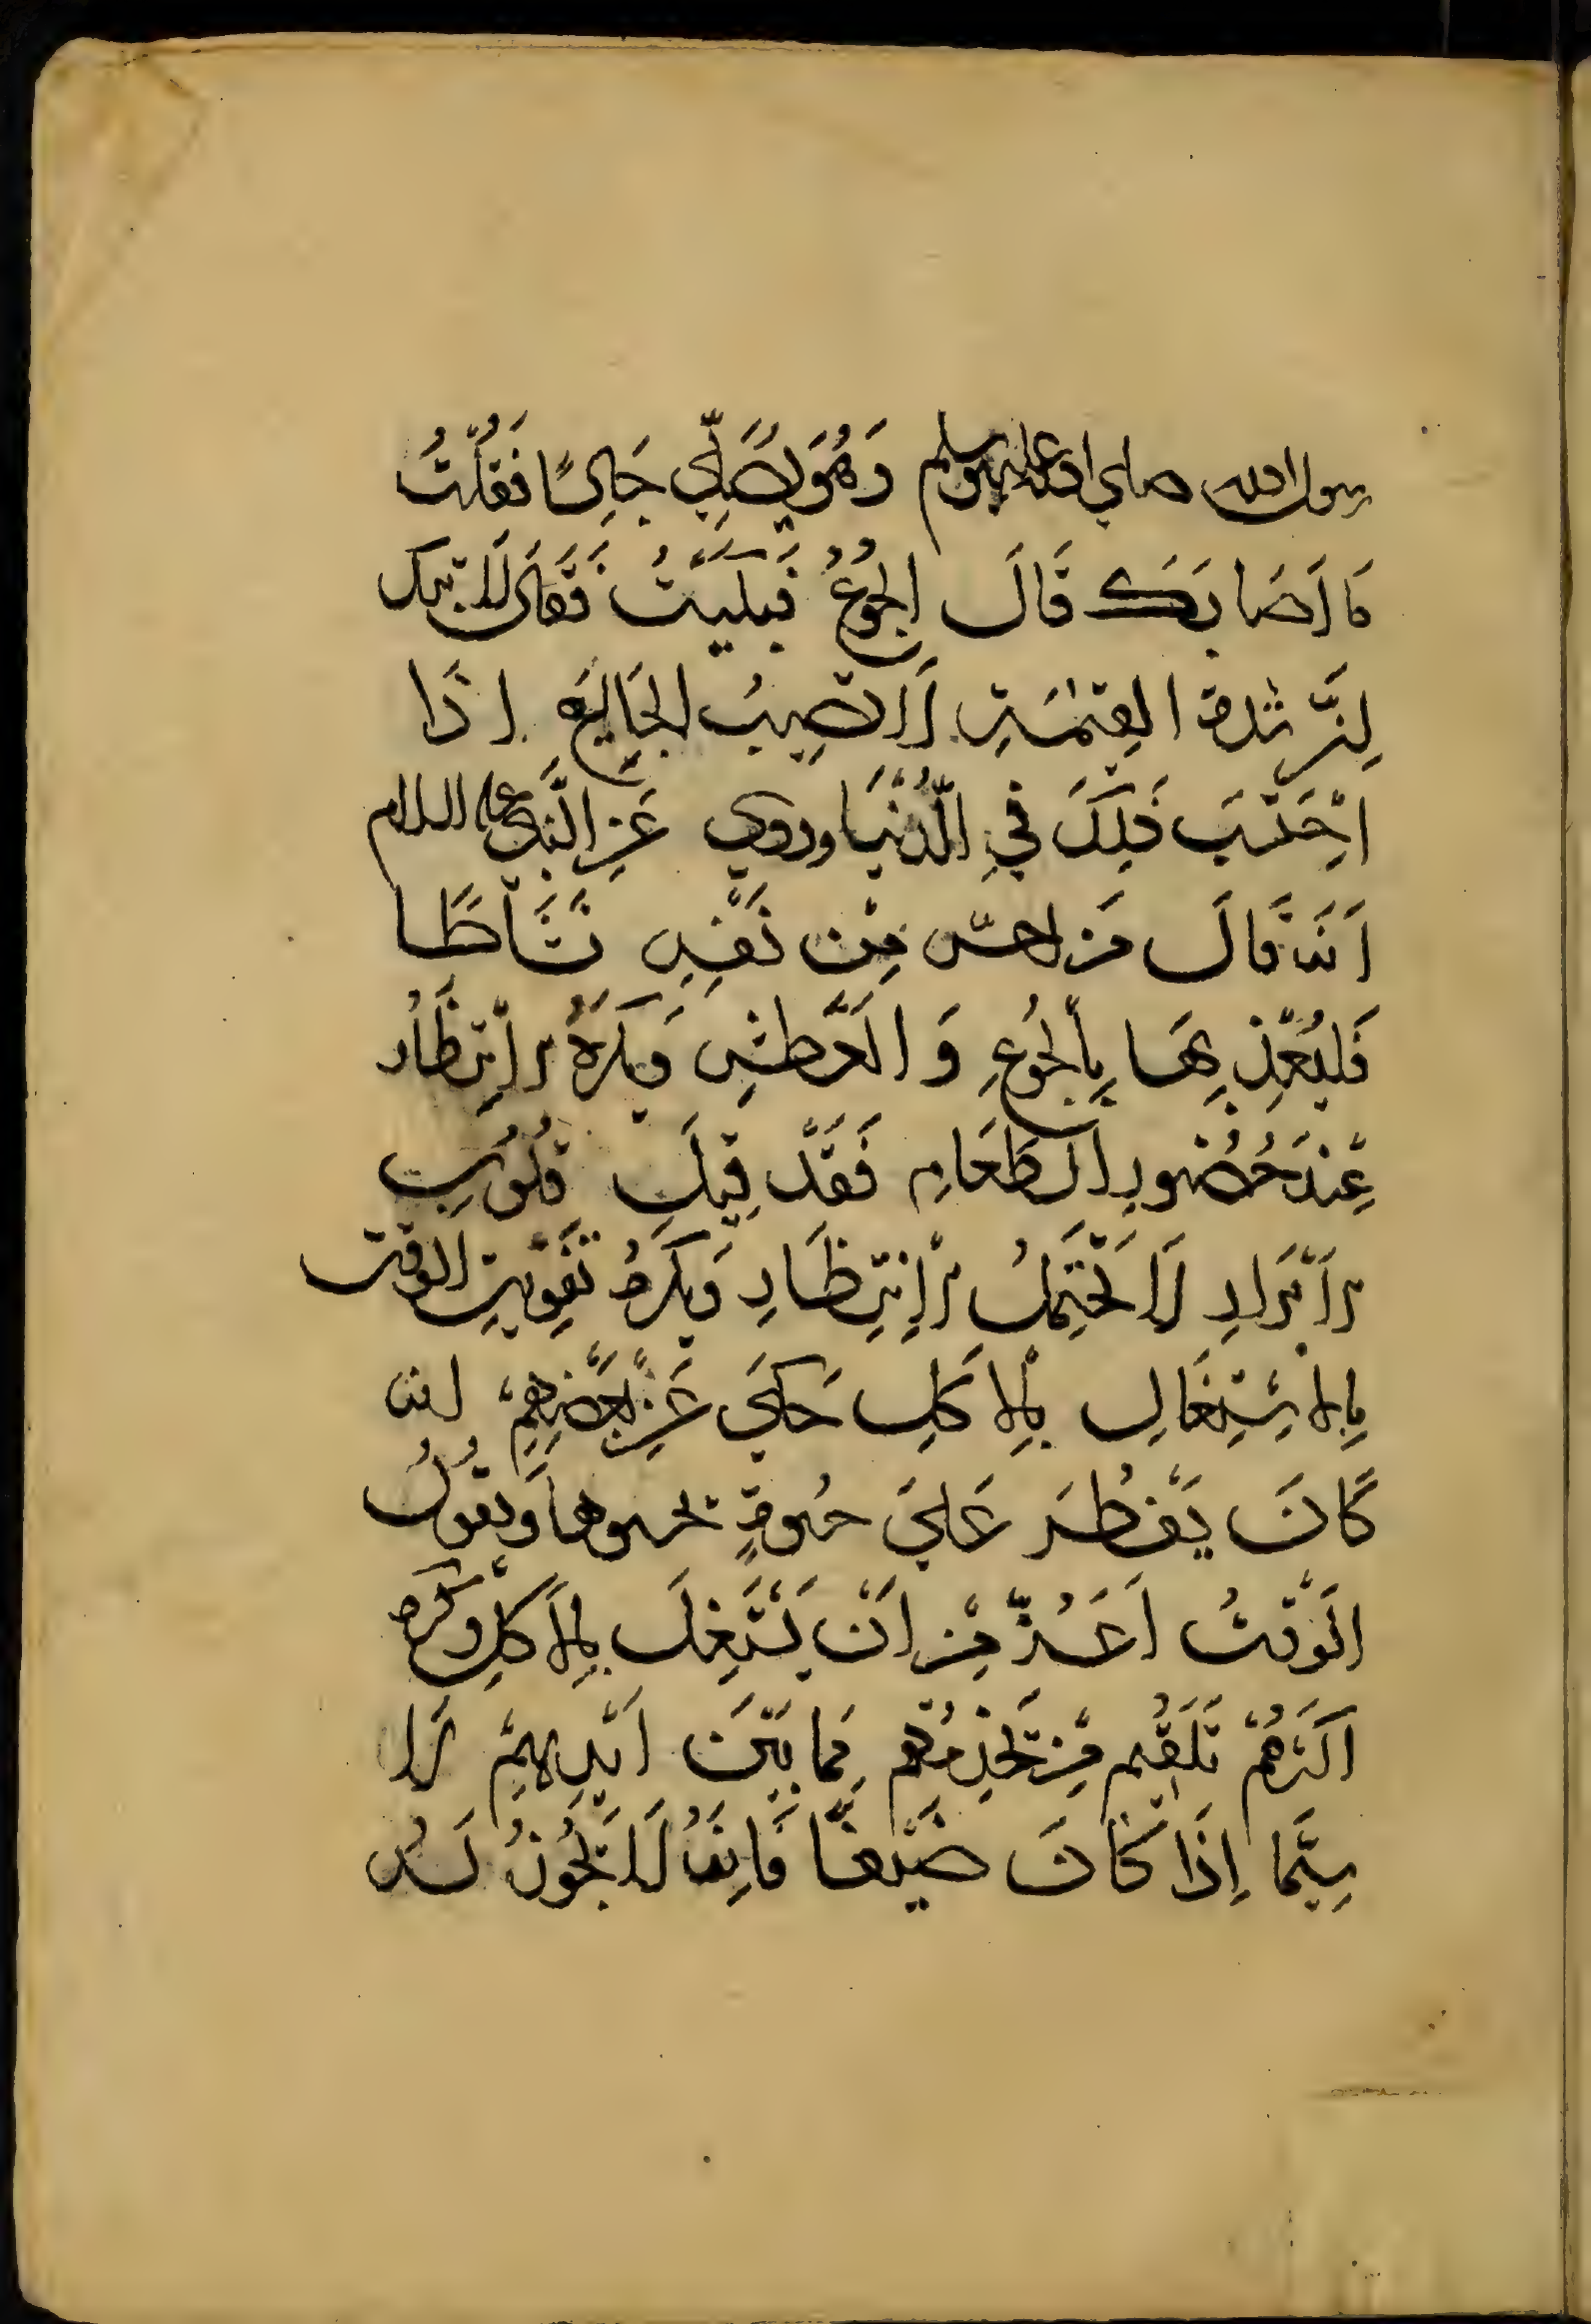 رسول الله صلي الله عليه وسلم وَهُوَ يُصَلِّي جَالِسًا فَقُلْتُ
مَا اَصَابَكَ قَالَ الجُوْعُ فَبَكَيْتُ فَقَالَ لَا تبك
لِاَنَّ شدة القِيٰمَةِ لَا تصِيبُ الجَايِعَ اِذَا
احْتَسَبَ ذَلِكَ فيِ الدُّنْيَا وروي عَنِ النَّبي عليه السلام
اَنه قَالَ مَن احسّ مِنْ نَفْسِهِ نَشَاطًا
فَليُعَذِّبهَا بِالْجُوعِ وَ العَطشِ وَيكرَهُ الْاِنتِظَار
عِنْدَ حُضُورِ الطَعَامِ فَقَدْ قِيلَ قلُوبُ
الْاَبْرَارِ لَا تَحْتَمِلُ الْاِنتِظَارِ وَيكرهُ تَفْوِيْتِ الوقت
بِالاشْتِغَالِ بالْاكلِ حَكيَ عَنْ بَعْضِهِمْ انه
كَانَ يَفْطُرَ عَليَ حسُوةٍ يحسوها وَيقُولُ
الَوْقتُ اَعَزُّ مِنْ اَنْ يَشْتَغِلَ بالْاَكلِ وكره
اَكثرَهُمْ تَلَقُيم مَنْ يَخْدِمُهم مِمَا بَيْنَ اَيْدِيهِمْ لَا
سِيَّمَا اِذَا كَانَ ضَيْفًا فَاِنَهُ لَا يَجُوزُ لَهُ